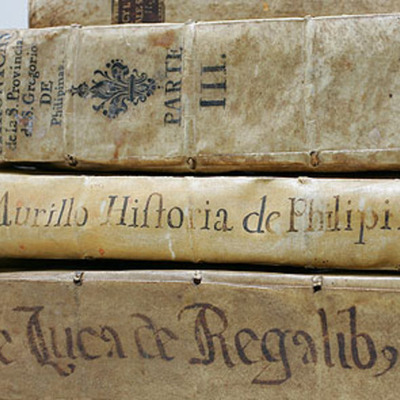 de la S. Provincia
de S. Gregorio
DE
Philipinas.
PARTE
III.
Murillo Hiſtoria de Philipi
e Luca de Regalib,